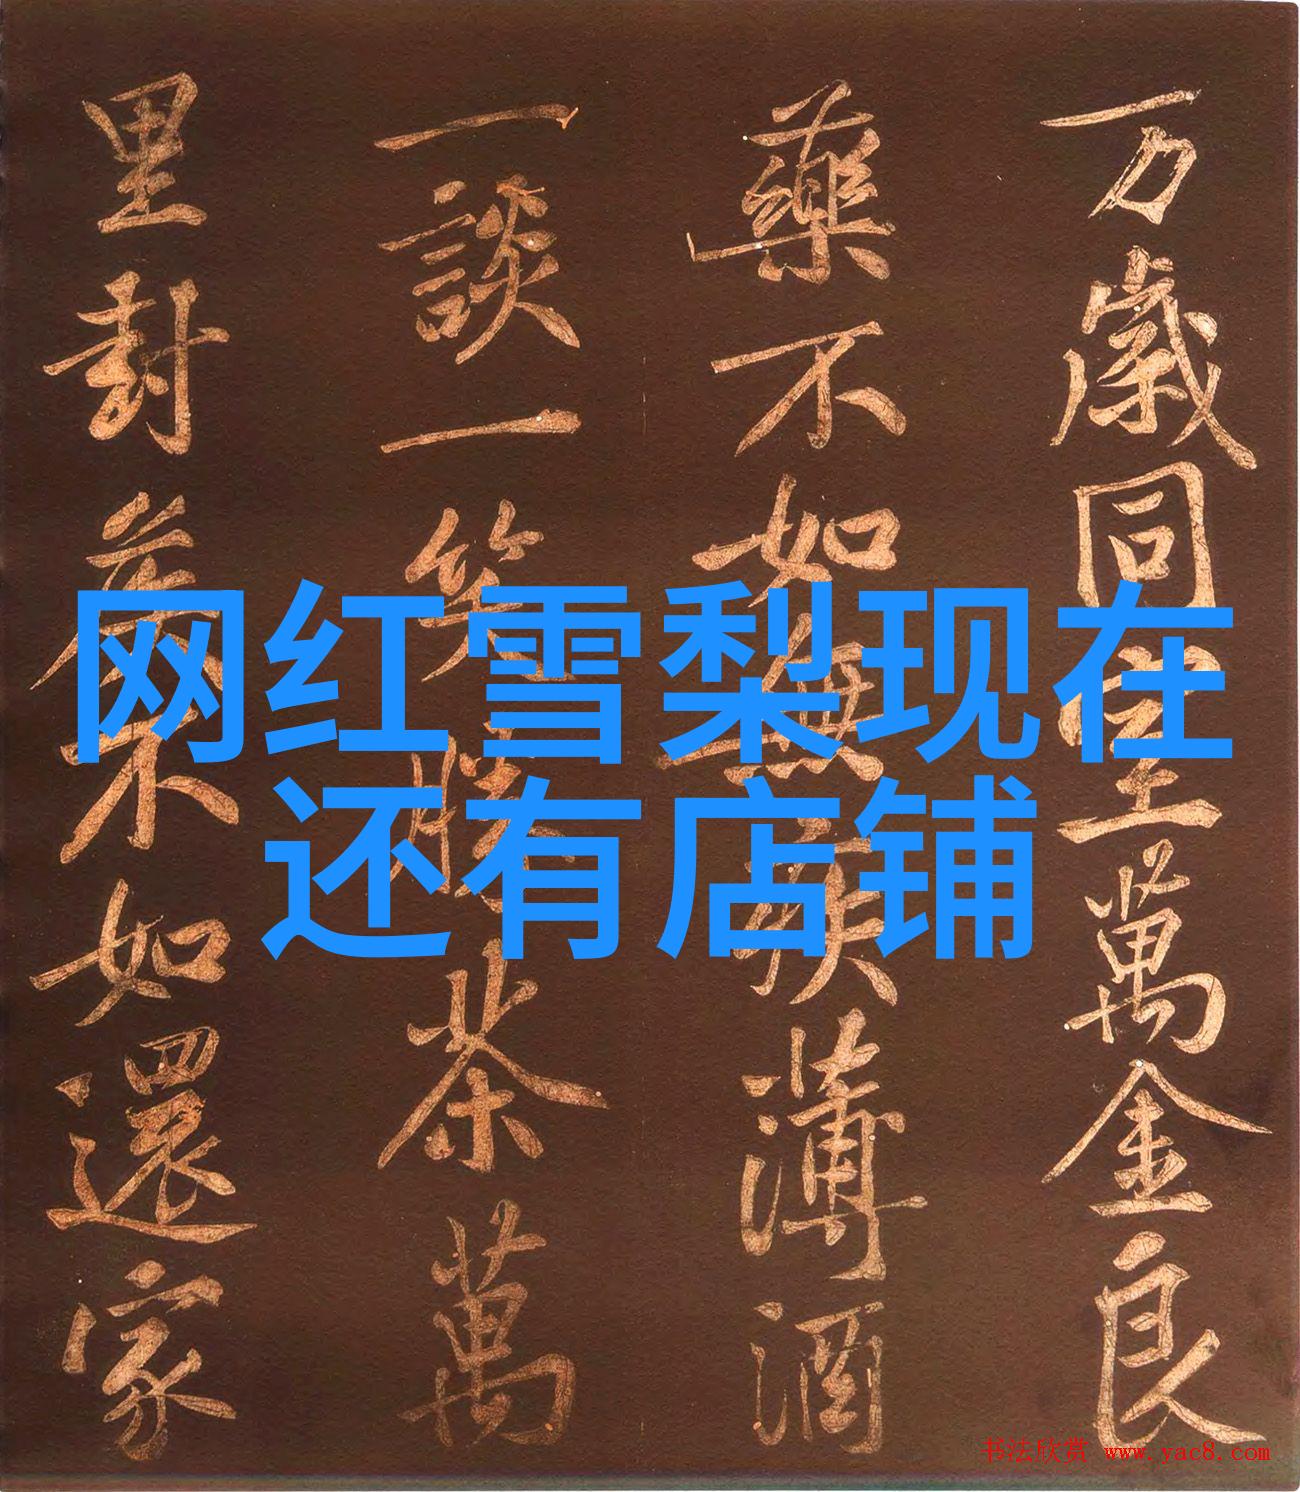 网红雪梨现在
还有店铺
万歲同室萬金良
藥不如無疾薄酒
一談一笑勝茶萬
里封侯不如還家
书法欣赏 www.yac8.com